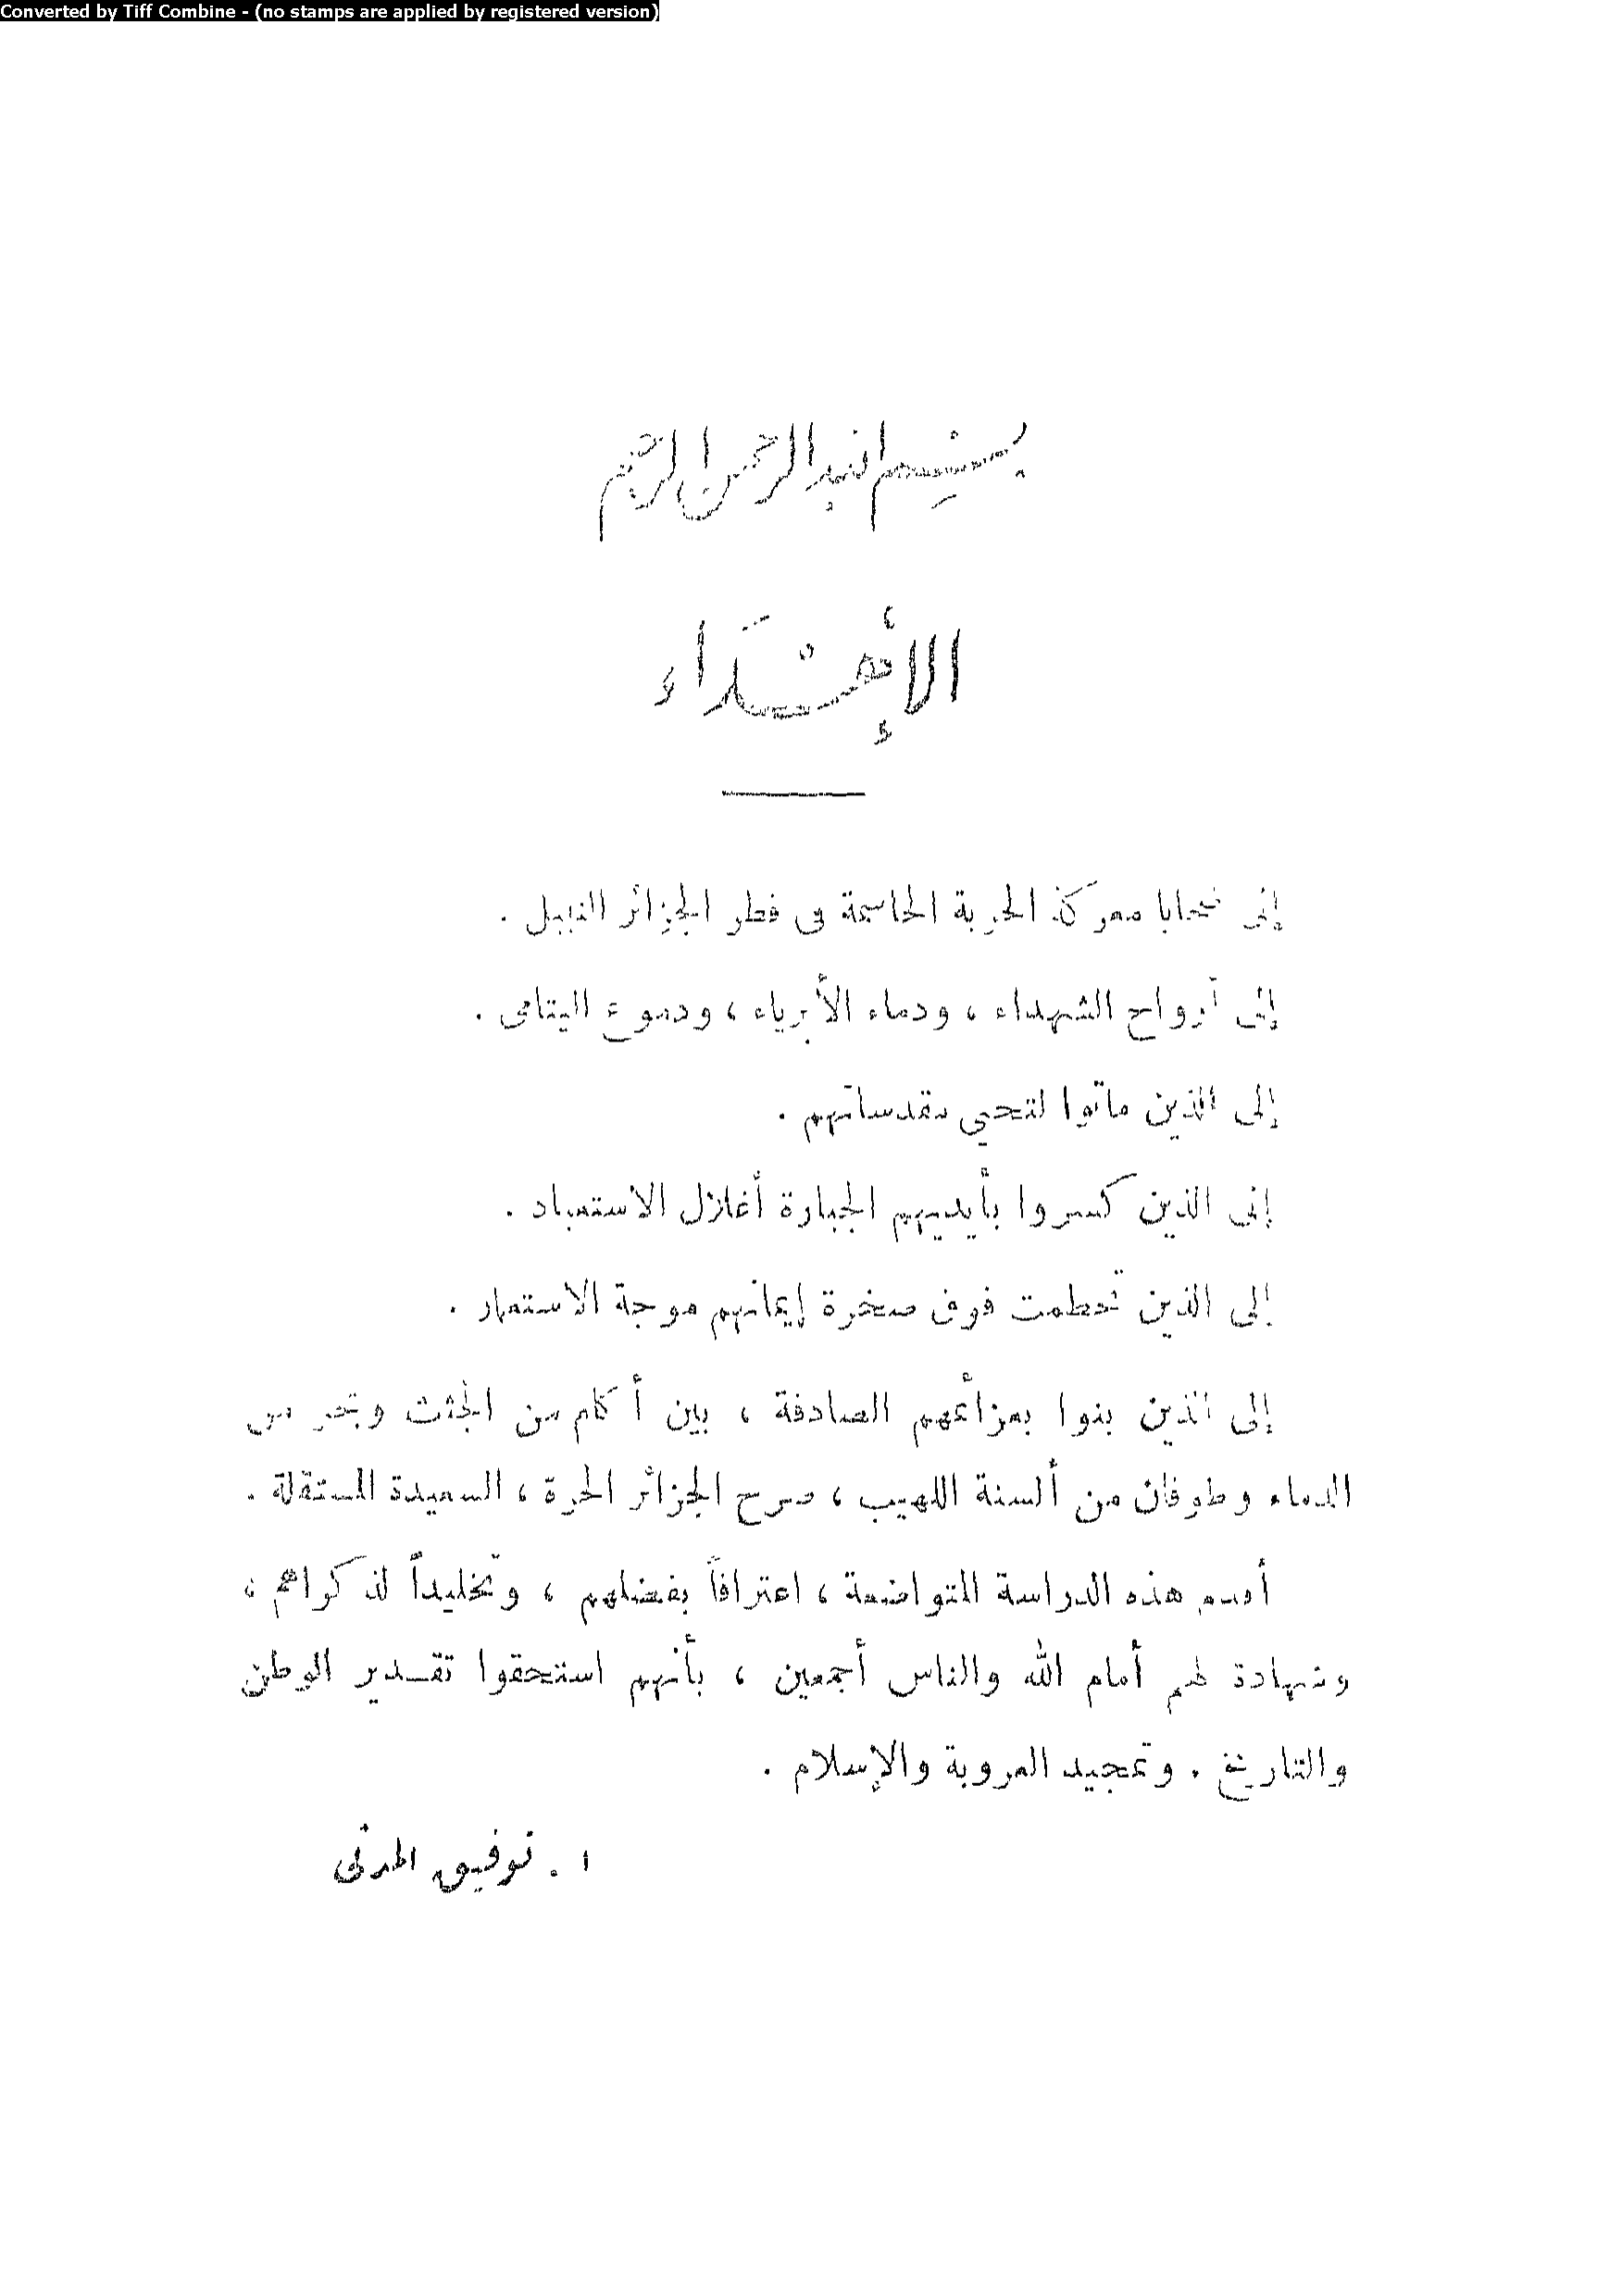 Converted by Tiff Combine - (no stamps are applied by registered version)
بسم الله الرحمن الرحيم
الإهداء
إلى ضحايا معركة الحرية الحاسمة فى قطر الجزائر النبيل .
إلى أرواح الشهداء ، ودماء الأبرياء ، ودموع اليتامى .
إلى الذين ماتوا لتحيي مقدساتهم .
إلى الذين كسروا بأيديهم الجبارة أغلال الاستعباد .
إلى الذين تحطمت فوق صخرة إيمانهم موجة الاستعمار .
إلى الذين بنوا بعزائمهم الصادقة ، بين أكام من الجثث وبحر من
الدماء وطوفان من ألسنة اللهيب ، صرح الجزائر الحرة ، السعيدة المستقلة .
أقدم هذه الدراسة المتواضعة ، اعترافاً بفضلهم ، وتخليداً لذكراهم ،
وشهادة لهم أمام الله والناس أجمعين ، بأنهم استحقوا تقـدير الوطن
والتاريخ . وتمجيد العروبة والإسلام .
ا . توفيق المدنى